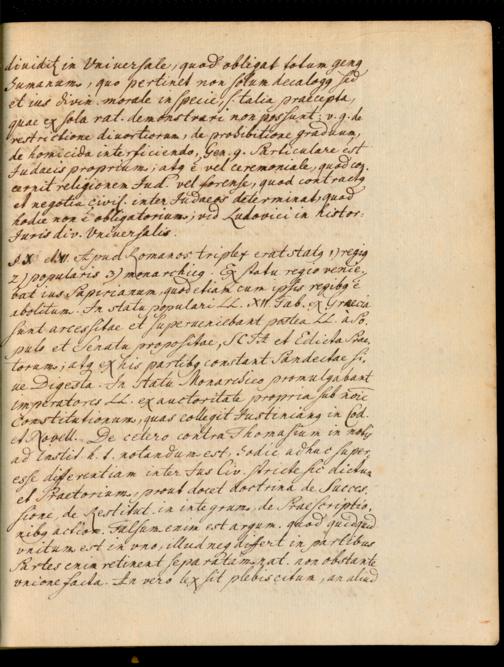 dividitʳ in Universale, quod obligat totum geng
humanum, quo pertinet non solum decalogg sed
et ius divin. morale in specie, s. talia praecepta,
quae ex sola rat. demonstrari non possunt; v. g. de
restrictione divortiorum, de prohibitione graduum,
de homicida interficiendo, Gen. 9. Particulare est
Judaeis proprium, atq; ē vel ceremoniale, quod con,
cernit religionem Jud. vel forense, quod contractg
et negotia civil. inter Judaeos determinat, quod
hodie non ē obligatorium; vid Ludovici in histor:
Juris div. Universalis.
§ X et XI. Apud Romanos triplex erat statg 1) regig
2) popularis 3) monarchicg. Ex statu regio venie,
bat ius Papirianum, quod etiam cum ipsis regibg ē
abolitum. In statu populari LL. XII Tab. ex Graecia
sunt arcessitae et superveniebant postea LL. à Po,
pulo et Senatu propositae, SCta et Edicta Prae,
torum; atq ex his partibg constant Pandectae si,
ve Digesta. In Statu Monarchico promulgabant
imperatores LL. ex auctoritate propria sub noīe
Constitutionum, quas collegit Justiniang in Cod.
et Novell. De cetero contra Thomasium in notis
ad Instit. h. t. notandum est, hodie adhuc super,
esse differentiam inter Jus Civ. stricte sic dictum
et Praetorium, prout docet doctrina de Succes,
sione, de Restitut. in integrum, de Praescriptio,
nibg action. Falsum enim est argum. quod quidquid
unitum est in uno, illud neq differt in partibus
Partes enim retinent separatam nat. non obstante
unione facta. An vero lex sit plebiscitum, an aliud